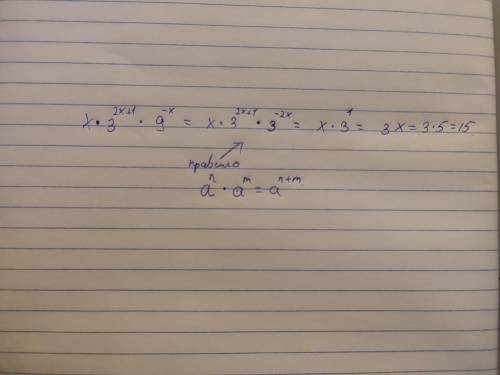 x · 3^{2x+1} · 9^{-x} = x · 3^{2x+1} · 3^{-2x} = x · 3^1 = 3x = 3·5 = 15
правило
a^n · a^m = a^{n+m}